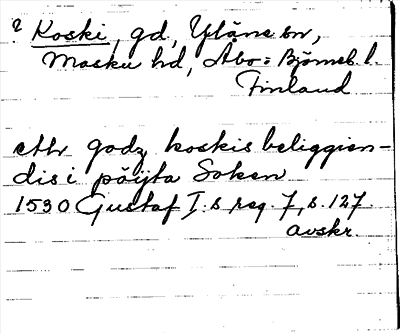 ? Koski, gd, Yläne sn,
Masku hd, Åbo= Björneb. l.
Finland
ett godz koskis beliggien-
dis i pöijta Soken
1530 Gustaf I:s reg. 7, s. 127.
avskr.